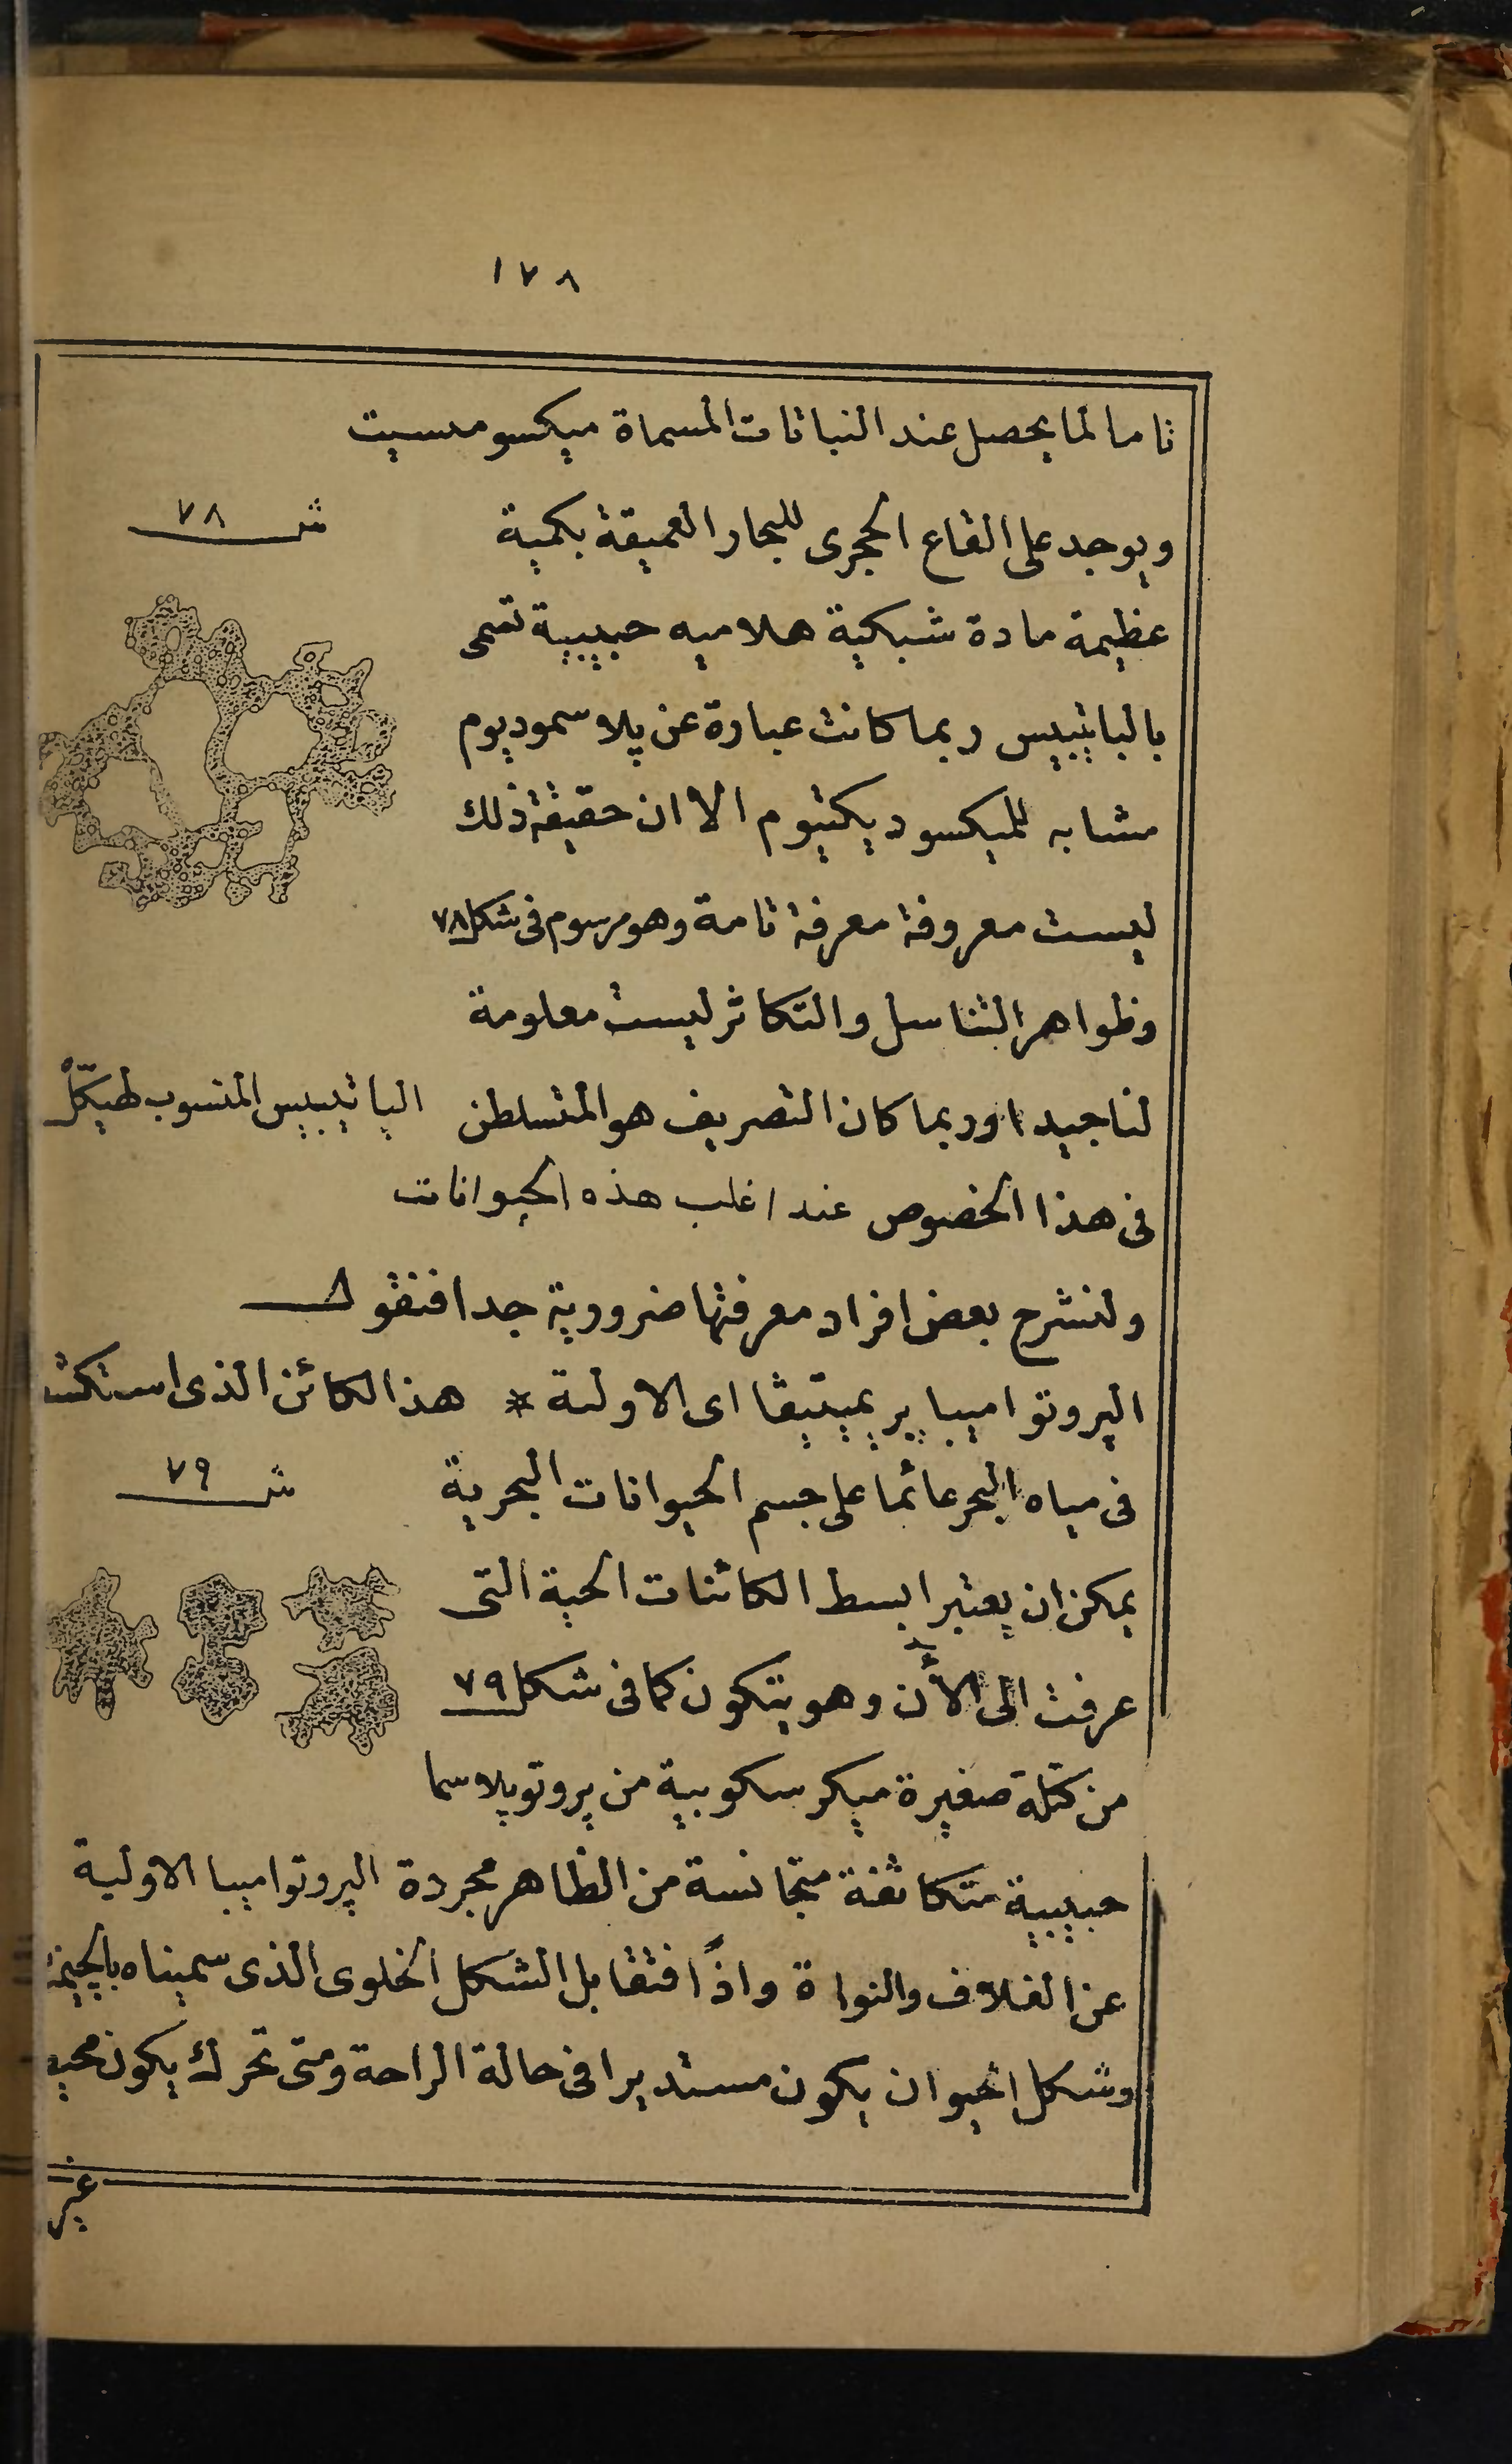 ١٧٨
تاما لما يحصل عند النباتات المسماة ميكسومسيت
ش ٧٨
ويوجد على القاع الحجرى للبحار العميقة بكمية
عظيمة مادة شبكية هلاميه حبيبية تسمى
بالباتيبيس ربما كانت عبارة عن پلاسموديوم
مشابه للميكسوديكتيوم الا ان حقيقة ذلك
ليست معروفة معرفة تامة وهو مرسوم فى شكل ٧٨
وظواهر التناسل والتكاثر ليست معلومة
لنا جيدا وربما كان التصريف هو المتسلطن
الباتيبيس المنسوب لهيكل
فى هذا الخصوص عند اغلب هذه الحيوانات
ولنشرح بعض افراد معرفتها ضرورية جدا فنقول
الپروتواميبا پريميتيڤا اى الاولية * هذا الكائن الذى
فى مياه البحر عائما على جسم الحيوانات البحرية
ش ٧٩
يمكن ان يعتبر ابسط الكائنات الحية التى
عرفت الى الأن وهو يتكون كما فى شكل ٧٩
من كتلة صغيرة ميكرسكوبية من پروتوپلاسما
حبيبية متكاثفة متجانسة من الظاهر مجردة
الپروتواميبا الاولية
عن الغلاف والنواة واذًا فتقابل الشكل الخلوى الذى سميناه
وشكل الحيوان يكون مستديرا فى حالة الراحة ومتى تحرك يكون
غير